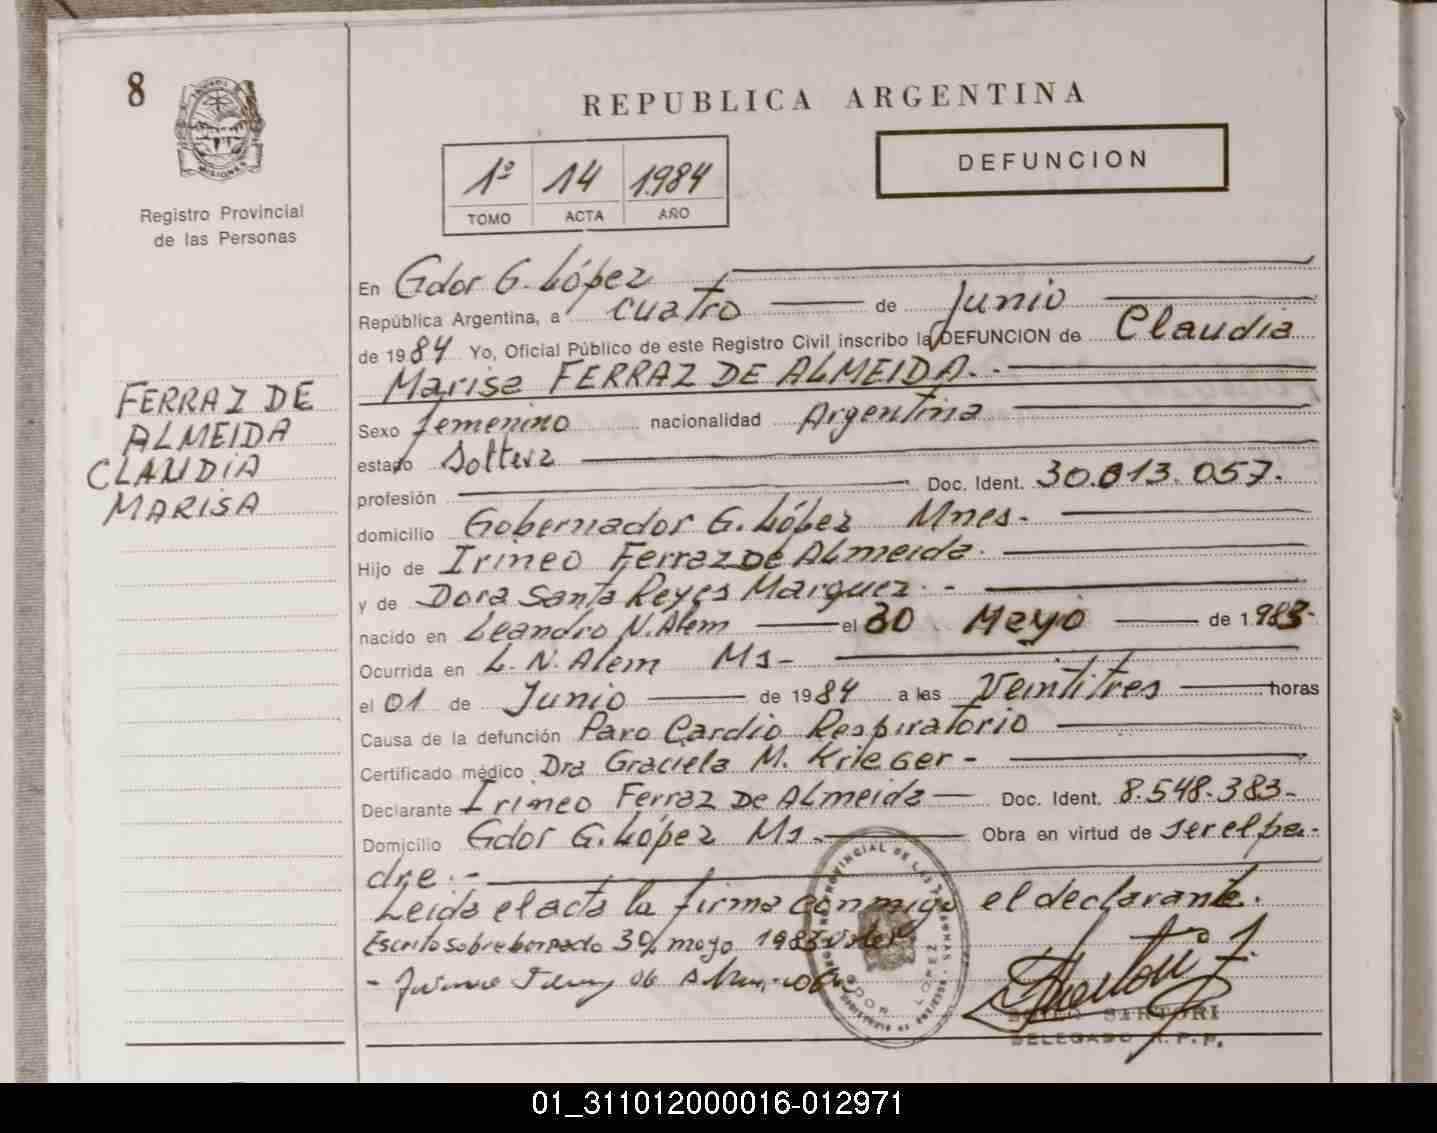 8
REPUBLICA ARGENTINA
DEFUNCION
1º 14 1984
TOMO ACTA AÑO
MISIONES
Registro Provincial
de las Personas
FERRAZ DE
ALMEIDA
CLAUDIA
MARISA
En Gdor G. López
República Argentina, a cuatro de Junio
de 1984 Yo, Oficial Público de este Registro Civil inscribo la DEFUNCION de Claudia
Marisa FERRAZ DE ALMEIDA.-
Sexo femenino nacionalidad Argentina
estado Soltera
profesión Doc. Ident. 30.013.057.
domicilio Gobernador G. López Mnes-
Hijo de Irineo Ferraz De Almeida.
y de Dora Santa Reyes Marquez.-
nacido en Leandro N. Alem el 30 Mayo de 1.983-
Ocurrida en L. N. Alem Ms-
el 01 de Junio de 1984 a las Veintitres horas
Causa de la defunción Paro Cardio Respiratorio
Certificado médico Dra Graciela M. Krieger-
Declarante Irineo Ferraz De Almeida Doc. Ident. 8.548.383-
Domicilio Gdor G. López Ms- Obra en virtud de ser el pa-
dre.-
Leida el acta la firma conmigo el declarante.
Escrito sobre borrado 30, mayo 1983 vale
SARTORI
DELEGADO R.P.P.
GDOR. LOPEZ
01_311012000016-012971